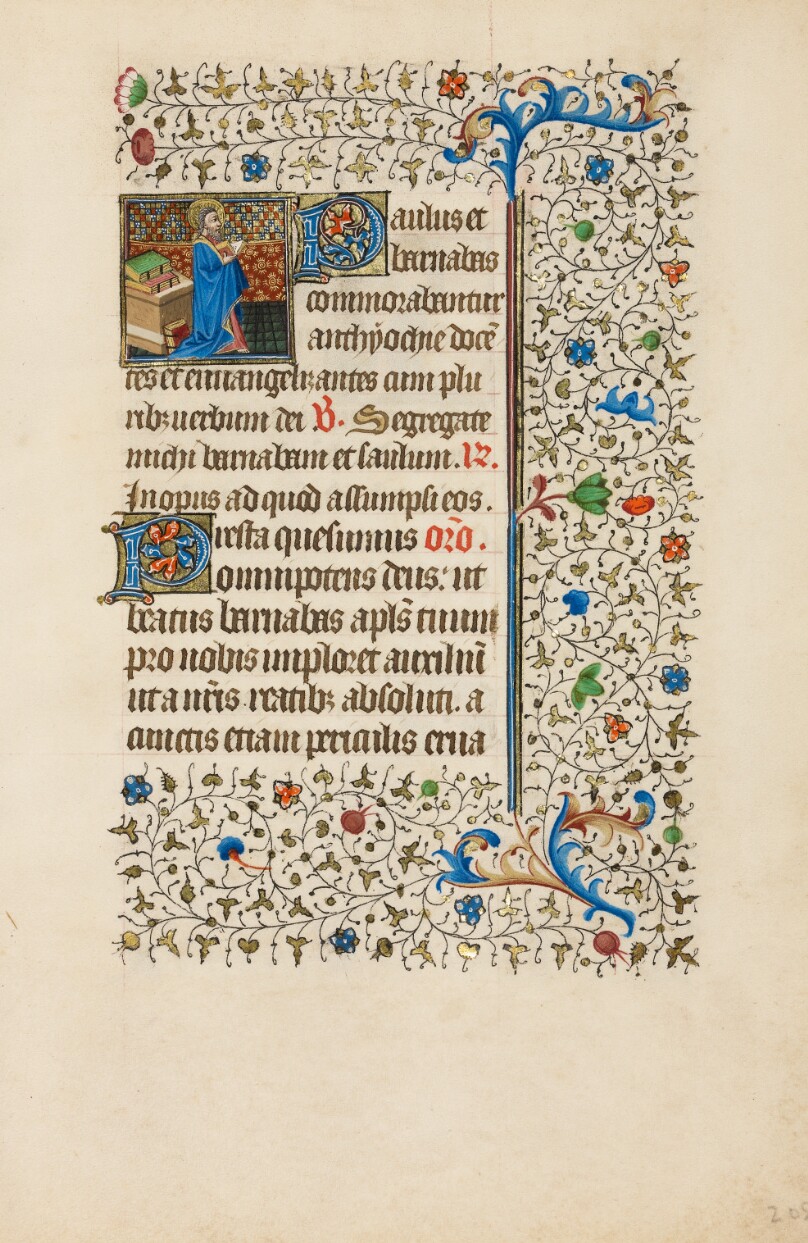 Paulus et
barnabas
commorabantur
anthyochie docē
tes et euuangelizantes cum plu
ribꝫ uerbum dei V. Segregate
michi barnabam et saulum. R.
In opus ad quod assumpsi eos.
Presta quesumus orō.
omnipotens deus: ut
beatus barnabas apl̄s tuum
pro nobis imploret auxiliū
ut a nr̄is reatibꝫ absoluti. a
cunctis etiam periculis erua
205